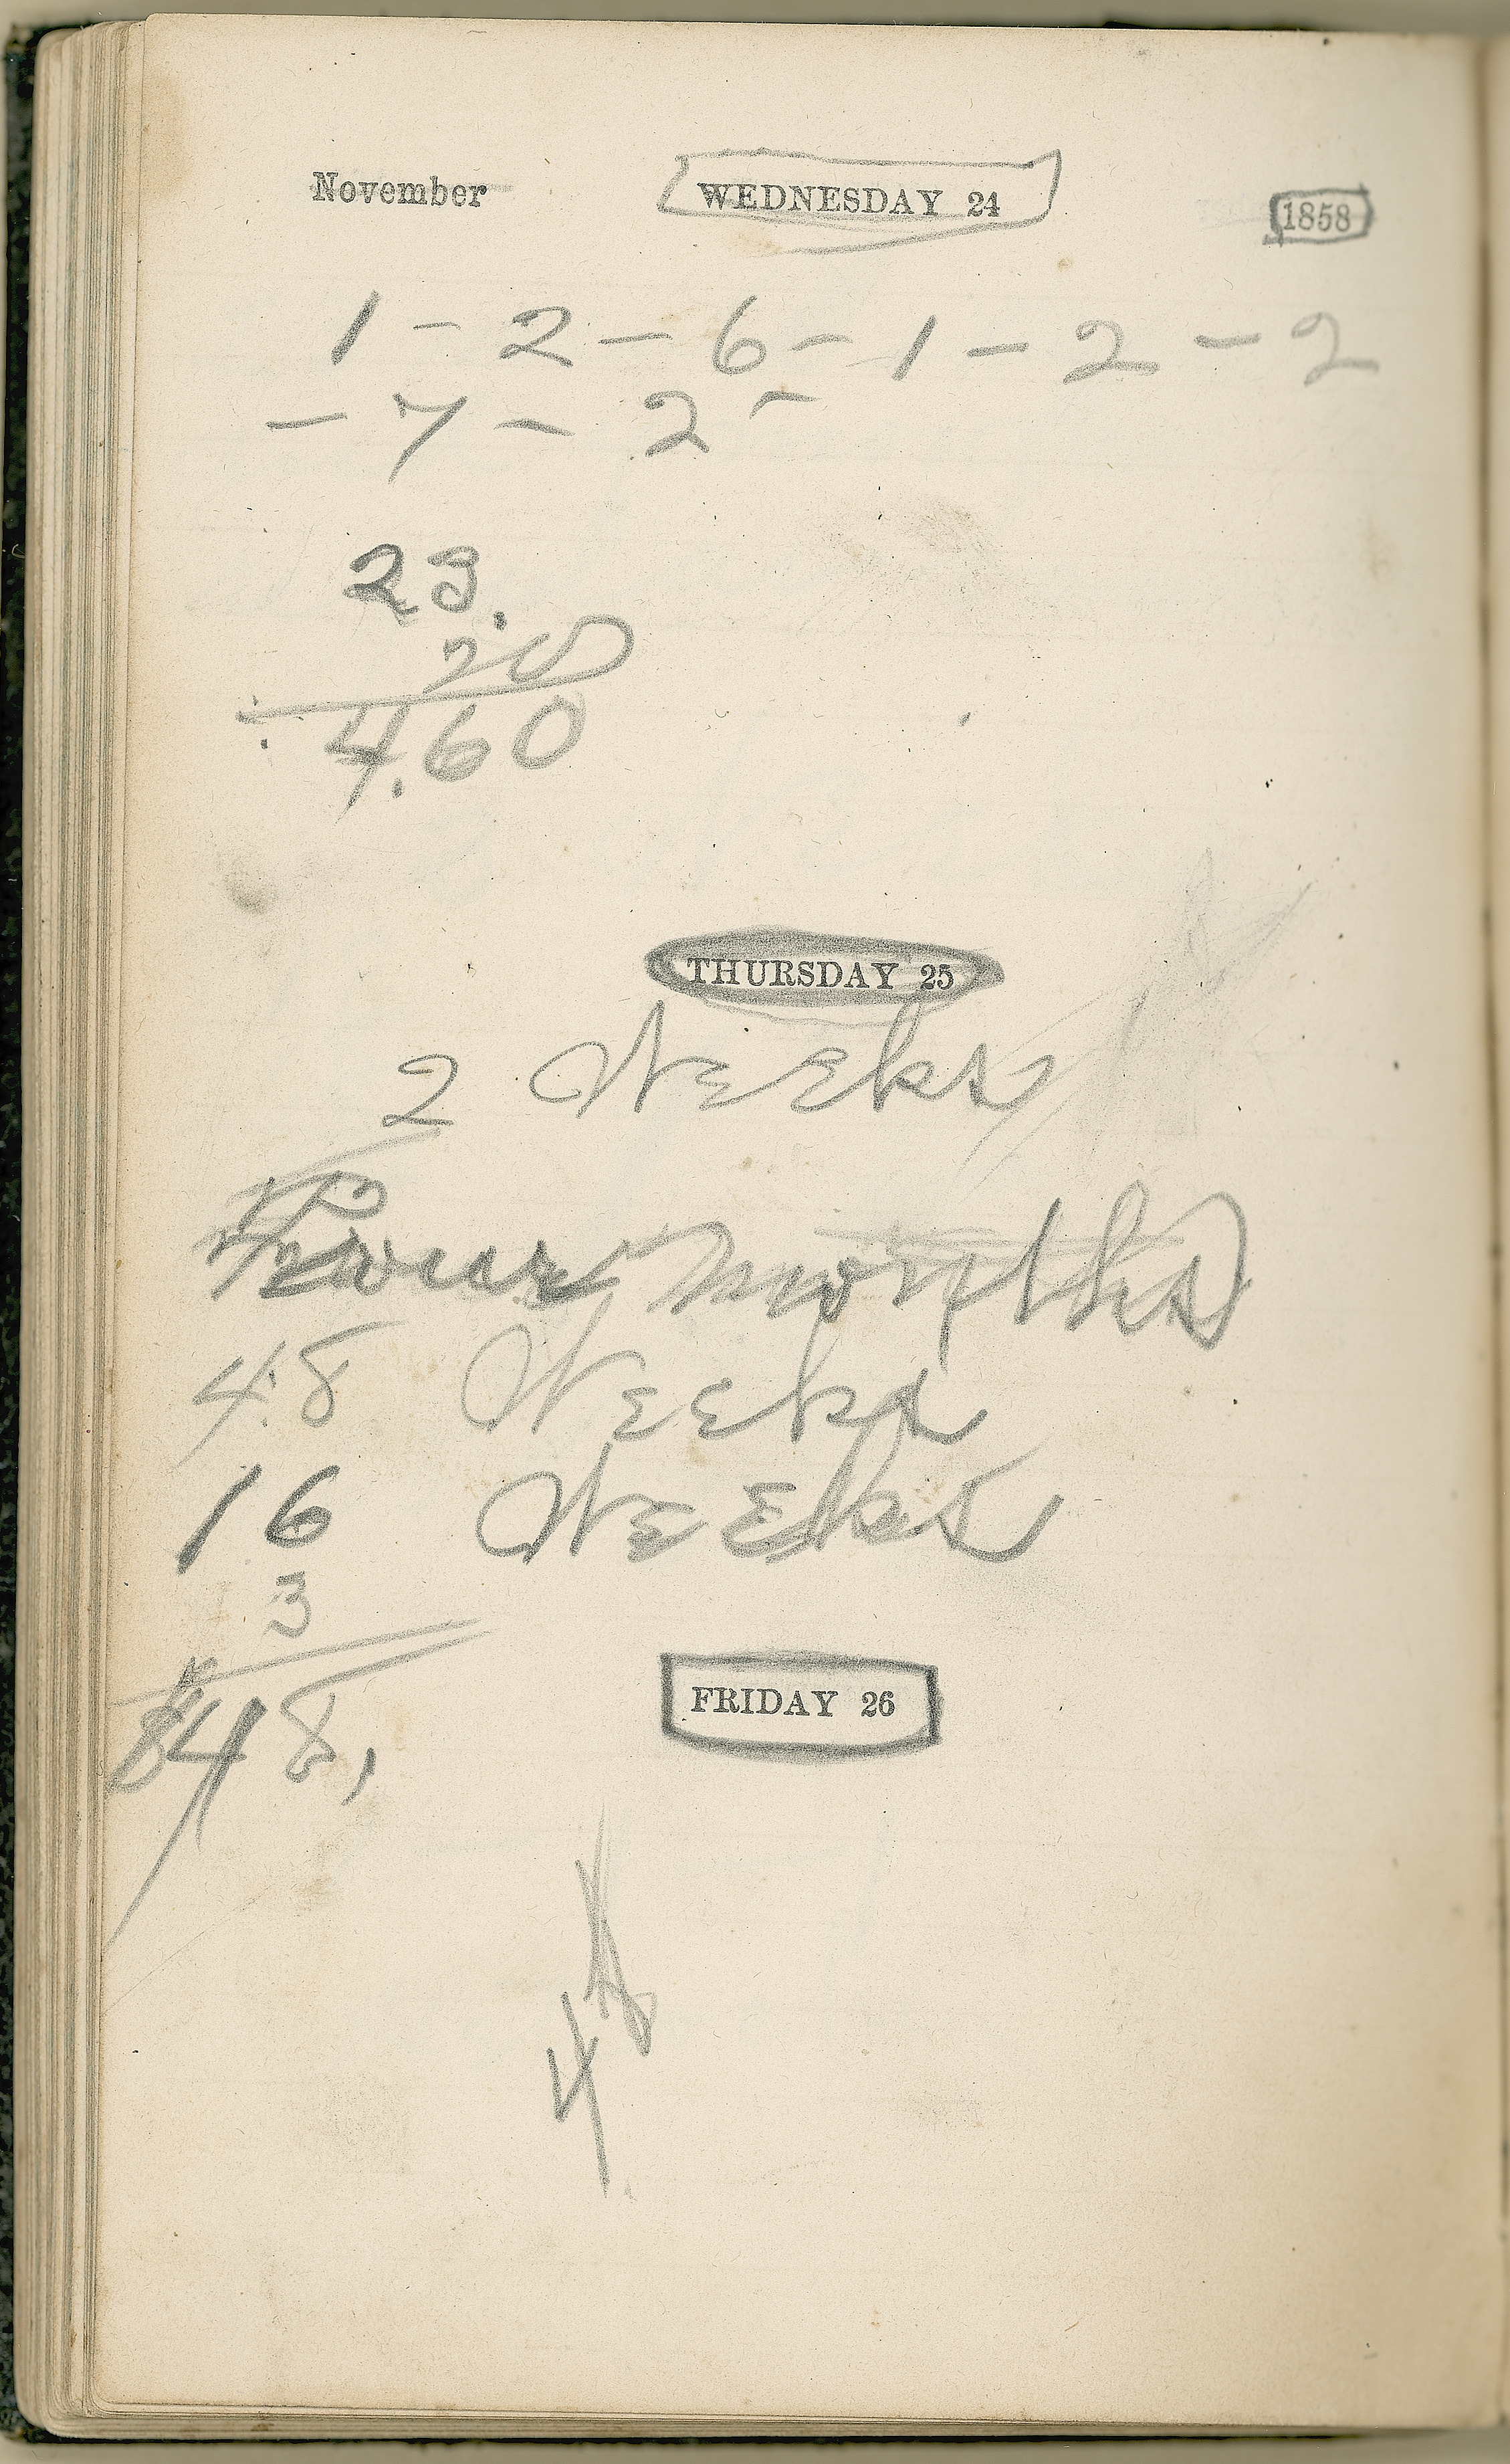 November WEDNESDAY 24 1858
1 - 2 - 6 - 1 - 2 - 2
- 7 - 2 -
23.
20
4.60
THURSDAY 25
2 Weeks
Four months
48 Weeks
16 Weeks
3
$48,
FRIDAY 26
4